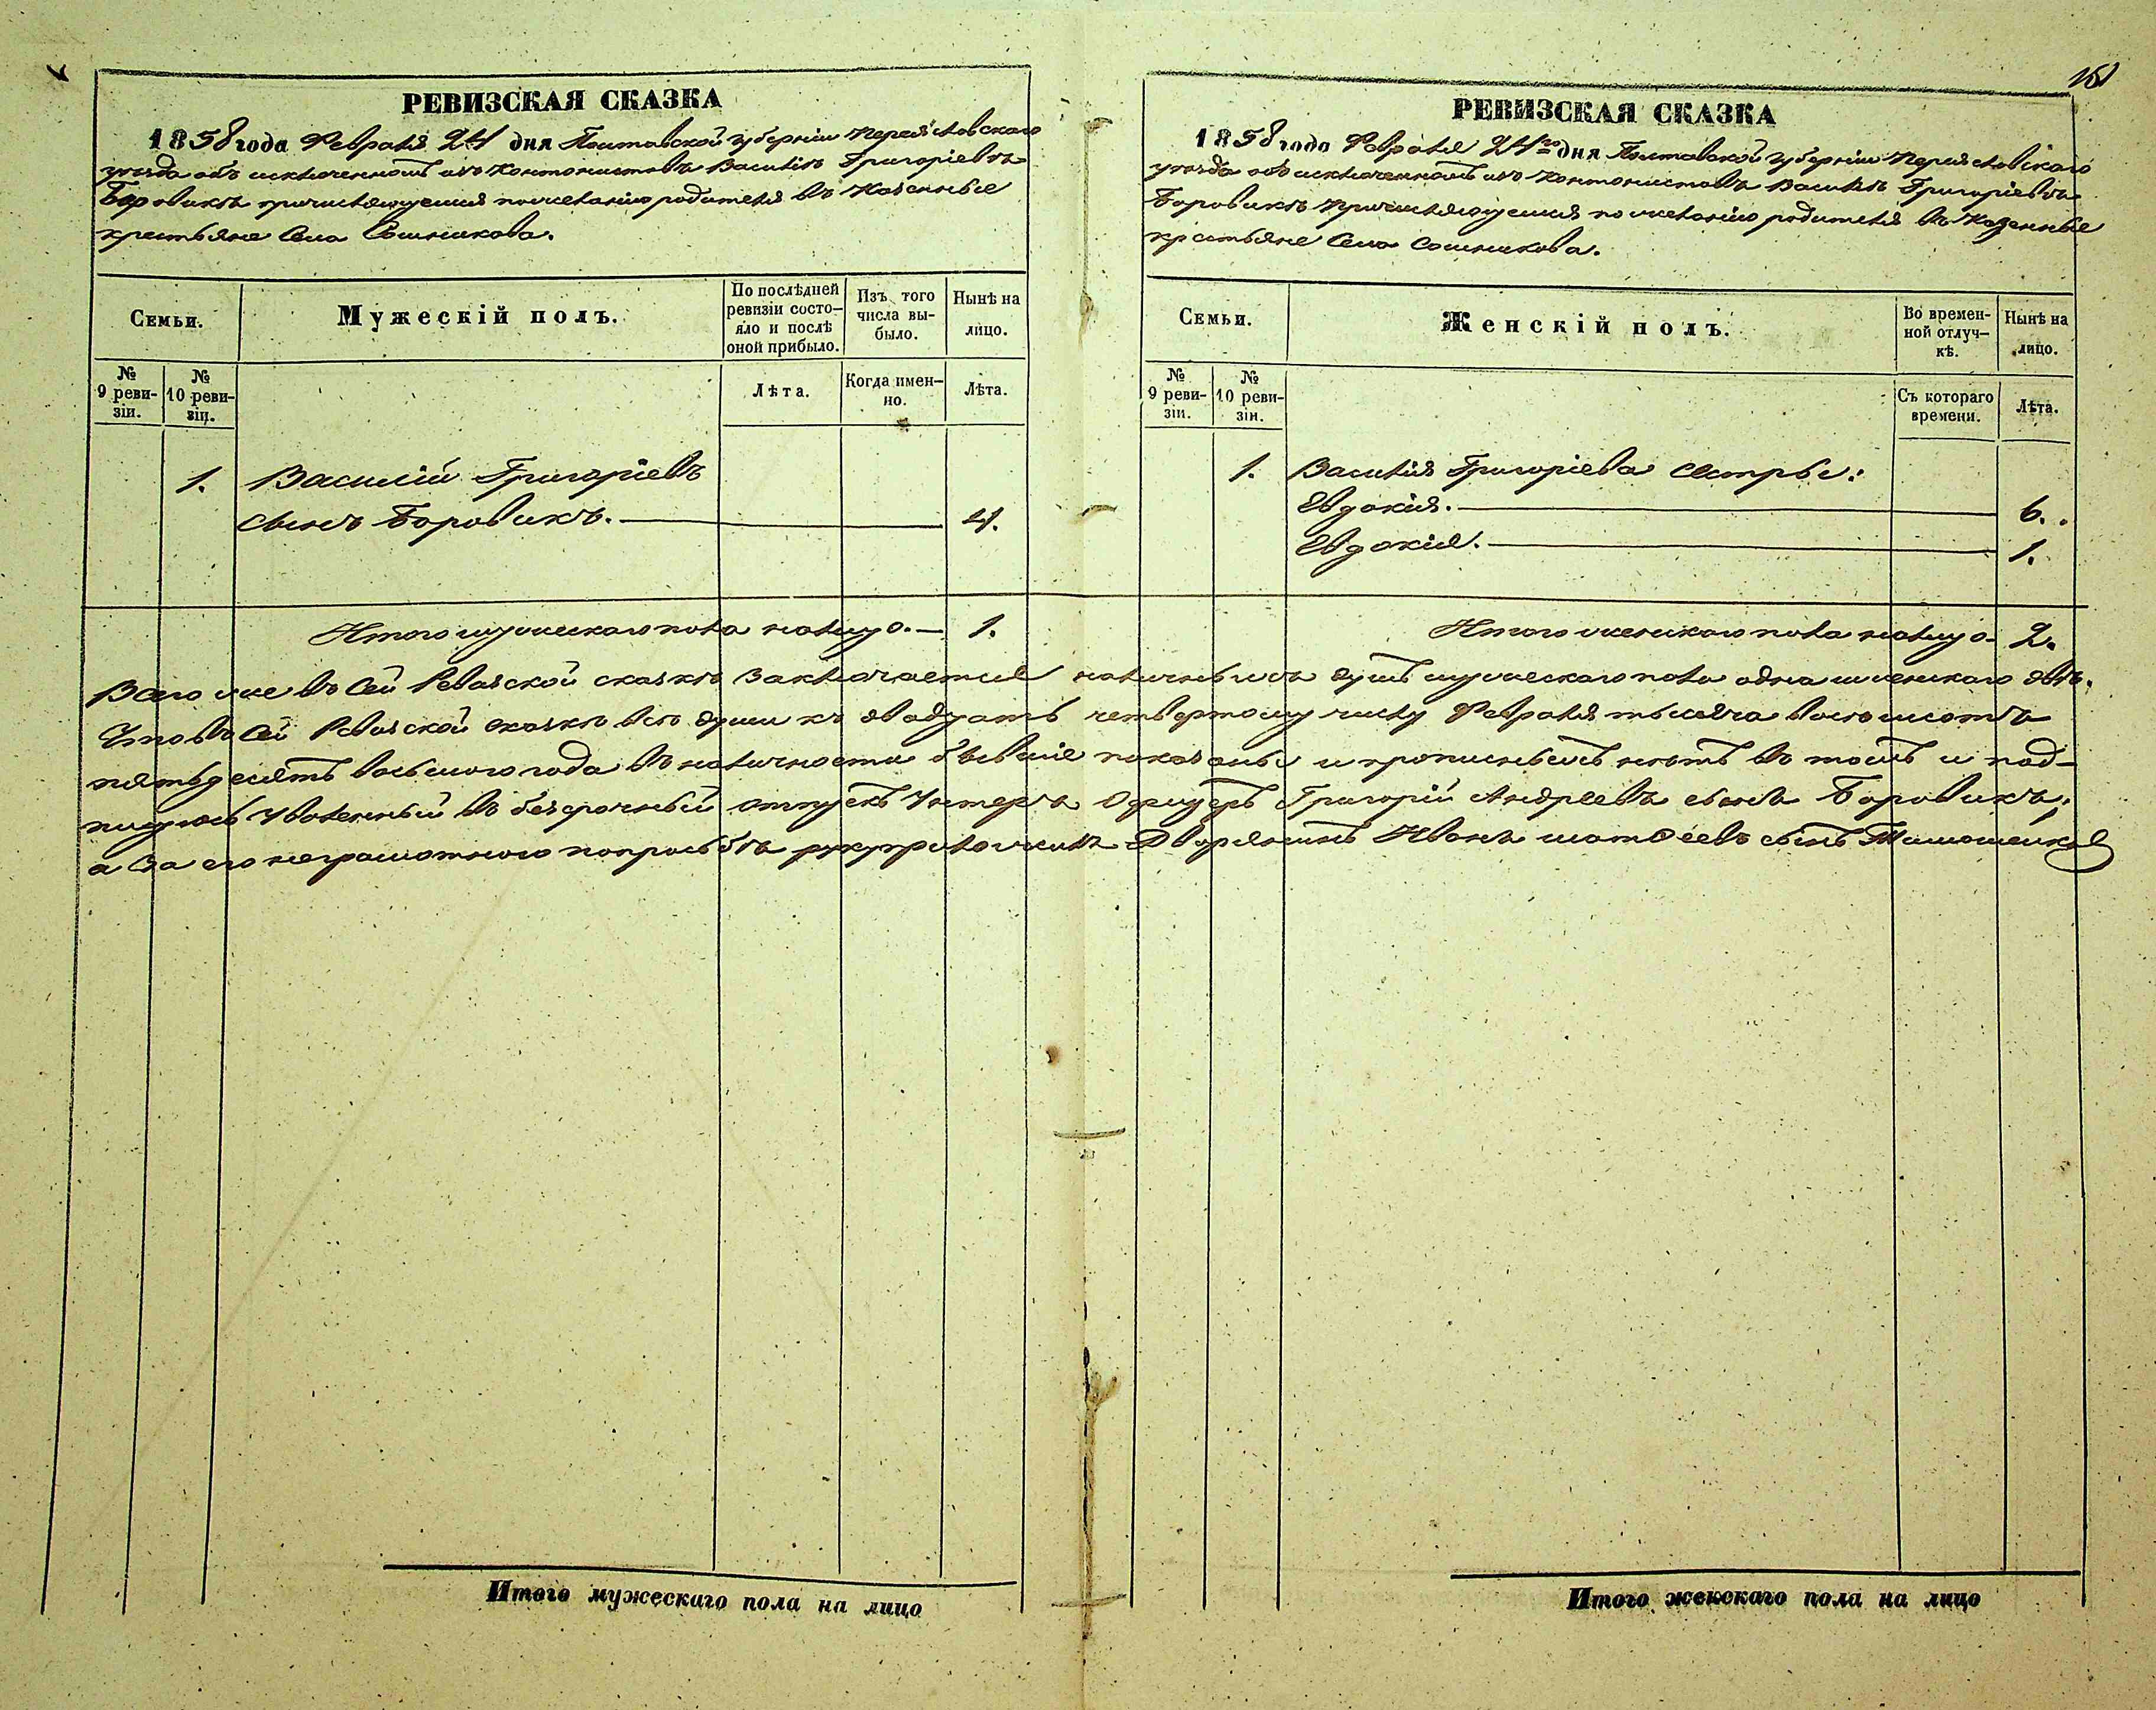 151
РЕВИЗСКАЯ СКАЗКА
1858 года Февраля 24 дня Полтавской губерніи Переяславскаго
уезда объ исключенномъ изъ кантонистовъ Василіѣ Григоріевѣ
Боровикѣ причисляющемся по желанію родителя въ Казенные
крестьяне Села Сошникова.
Семьи.
Мужескій полъ.
По послѣдней ревизіи состо-яло и послѣ оной прибыло.
Изъ того числа вы-было.
Нынѣ на лицо.
№ 9 реви-зіи.
№ 10 реви-зіи.
Лѣта.
Когда имен-но.
Лѣта.
1. Василій Григоріевъ
сынъ Боровикъ. 4.
Итого мужескаго пола налицо. 1.
РЕВИЗСКАЯ СКАЗКА
1858 года Февраля 24го дня Полтавской губерніи Переяславскаго
уезда объ исключенномъ изъ кантонистовъ Василіѣ Григоріевѣ
Боровикѣ Причисляющемся по желанію родителя въ Казенные
крестьяне Села Сошникова.
Семьи.
Женскій полъ.
Во времен-ной отлуч-кѣ.
Нынѣ на лицо.
№ 9 реви-зіи.
№ 10 реви-зіи.
Съ котораго времени.
Лѣта.
1. Василія Григоріева сестры:
Евдокія. 6.
Евдокія. 1.
Итого женскаго пола налицо 2.
Всего же въ сей Ревизской сказкѣ заключается наличныхъ душъ мужескаго пола одна и женскаго двѣ.
Что въ сей Ревизской сказкѣ всѣ души къ двадцать четвертому числу Февраля тысяча восемьсотъ
пятьдесятъ восьмого года въ наличности бывшіе показаны и прописныхъ нѣтъ въ томъ и под-
писуюсь Уволенный въ безсрочный отпускъ Унтеръ Офицеръ Григорій Андреевъ сынъ Боровикъ,
а за его неграмотного по просьбѣ рукуприложилъ Дворянинъ Иванъ Матѳеевъ сынъ Тимошенков
Итого мужескаго пола на лицо
Итого женскаго пола на лицо